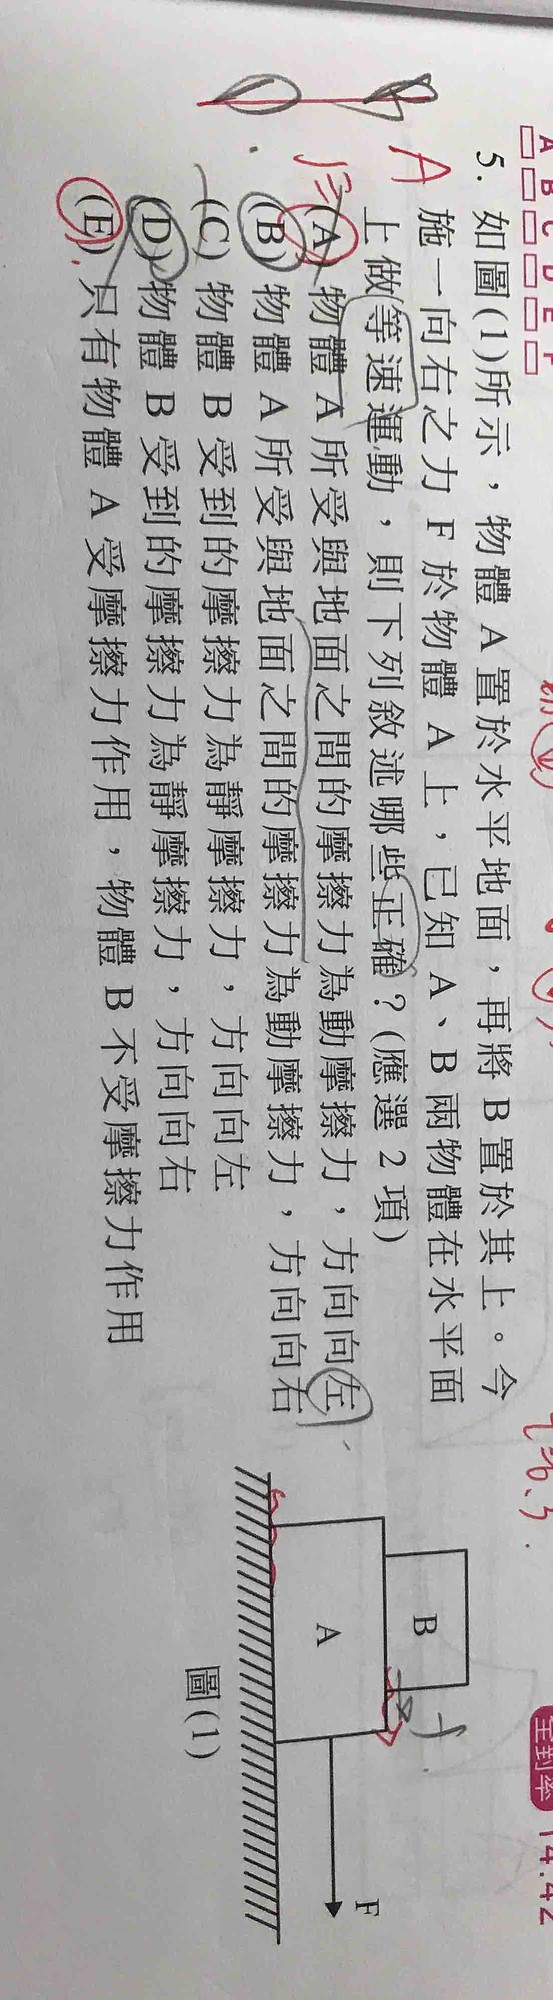 A B C D E F
5. 如圖(1)所示，物體 A 置於水平地面，再將 B 置於其上。今
施一向右之力 F 於物體 A 上，已知 A、B 兩物體在水平面
上做等速運動，則下列敘述哪些正確？(應選 2 項)
(A) 物體 A 所受與地面之間的摩擦力為動摩擦力，方向向左
(B) 物體 A 所受與地面之間的摩擦力為動摩擦力，方向向右
(C) 物體 B 受到的摩擦力為靜摩擦力，方向向左
(D) 物體 B 受到的摩擦力為靜摩擦力，方向向右
(E) 只有物體 A 受摩擦力作用，物體 B 不受摩擦力作用
A
B
f
A
F
圖(1)
全對率 14.42